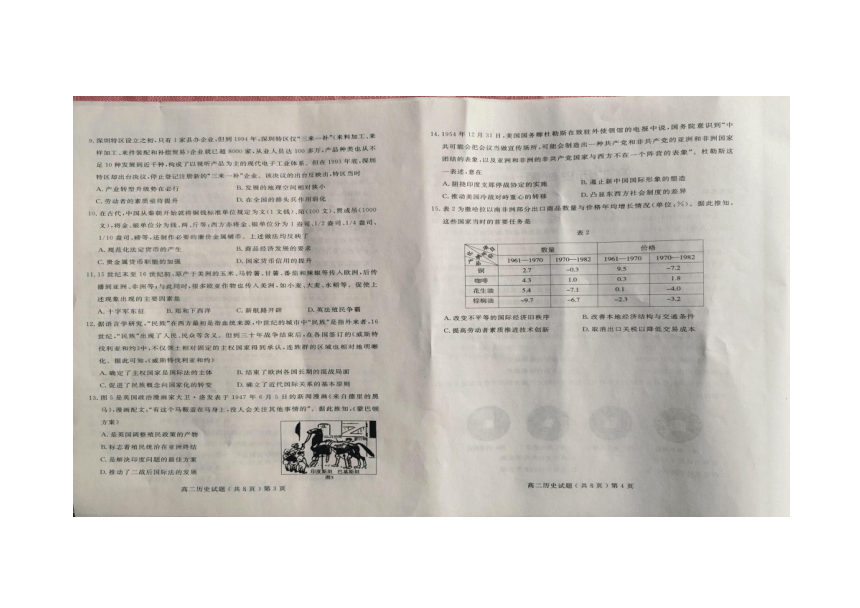 9.深圳特区设立之初,只有1家县办企业;但到1994年,深圳特区仅“三来一补”(来料加工、来
样加工、来件装配和补偿贸易)企业就已超8000家,从业人员达100多万,产品种类也从不
足10种发展到近千种,构成了以视听产品为主的现代电子工业体系。但在1993年底,深圳
特区却出台决议:停止登记注册新的“三来一补”企业。该决议的出台反映出,特区当时
A.产业转型升级势在必行 B.发展的地理空间相对狭小
C.劳动者的素质亟待提升 D.在全国的排头兵作用弱化
10.在古代,中国从秦朝开始就将铜钱标准单位规定为文(1文钱)、陌(100文)、贯或吊(1000
文),将金、银单位分为钱、两、斤等;西方亦将金、银单位分为1盎司、1/2盎司、1/4盎司、
1/10盎司、磅等,还制作必要的廉价金属辅币。上述做法均反映了
A.规范化法定货币的产生 B.商品经济发展的要求
C.贵金属货币职能的加强 D.国家货币信用的提升
11.15世纪末至16世纪初,原产于美洲的玉米、马铃薯、甘薯、番茄和辣椒等传入欧洲,后传
播到亚洲、非洲等;与此同时,很多欧亚作物也传入美洲,如小麦、大麦、水稻等。促使上
述现象出现的主要因素是
A.十字军东征 B.郑和下西洋 C.新航路开辟 D.英法殖民争霸
12.据语言学研究,“民族”在西方最初是指血统来源,中世纪的城市中“民族”是指外来者,16
世纪,“民族”出现了人民、民众等含义。但到三十年战争结束后,在各国签订的《威斯特
伐利亚和约》中,不仅领土相对固定的主权国家得到承认,连族群的区域也相对地明晰
化。据此可知,《威斯特伐利亚和约》
A.确定了主权国家是国际法的主体 B.结束了欧洲各国长期的混战局面
C.促进了民族概念向国家化的转变 D.确立了近代国际关系的基本原则
13.图5是英国政治漫画家大卫·洛发表于1947年6月5日的新闻漫画《来自德里的黑
马》,漫画配文:“有这个马鞍盖在马身上,没人会关注其他事情的”。据此推知,《蒙巴顿
方案》
A.是英国调整殖民政策的产物
B.标志着殖民统治在亚洲终结
C.是解决印度问题的最佳方案
D.推动了二战后国际法的发展
印度斯坦 巴基斯坦
图5
高二历史试题(共8页)第3页
14.1954年12月31日,美国国务卿杜勒斯在致驻外使领馆的电报中说,国务院意识到“中
共可能会把会议当做宣传场所,可能会制造出一种共产党和非共产党的亚洲和非洲国家
团结的表象,以及亚洲和非洲的非共产党国家与西方不在一个阵营的表象”。杜勒斯这
一表述,意在
A.阻挠印度支那停战协定的实施 B.遏止新中国国际形象的塑造
C.推动美国冷战对峙重心的转移 D.凸显东西方社会制度的差异
15.表2为撒哈拉以南非洲部分出口商品数量与价格年均增长情况(单位:%)。据此推知,
这些国家当时的首要任务是
表2
数量 价格
1961—1970 1970—1982 1961—1970 1970—1982
铜 2.7 -0.3 9.5 -7.2
咖啡 4.3 1.0 0.3 1.8
花生油 5.4 -7.1 0.1 -4.0
棕榈油 -9.7 -6.7 -2.3 -3.2
A.改变不平等的国际经济旧秩序 B.改善本地经济结构与交通条件
C.提高劳动者素质推进技术创新 D.取消出口关税以降低交易成本
高二历史试题(共8页)第4页